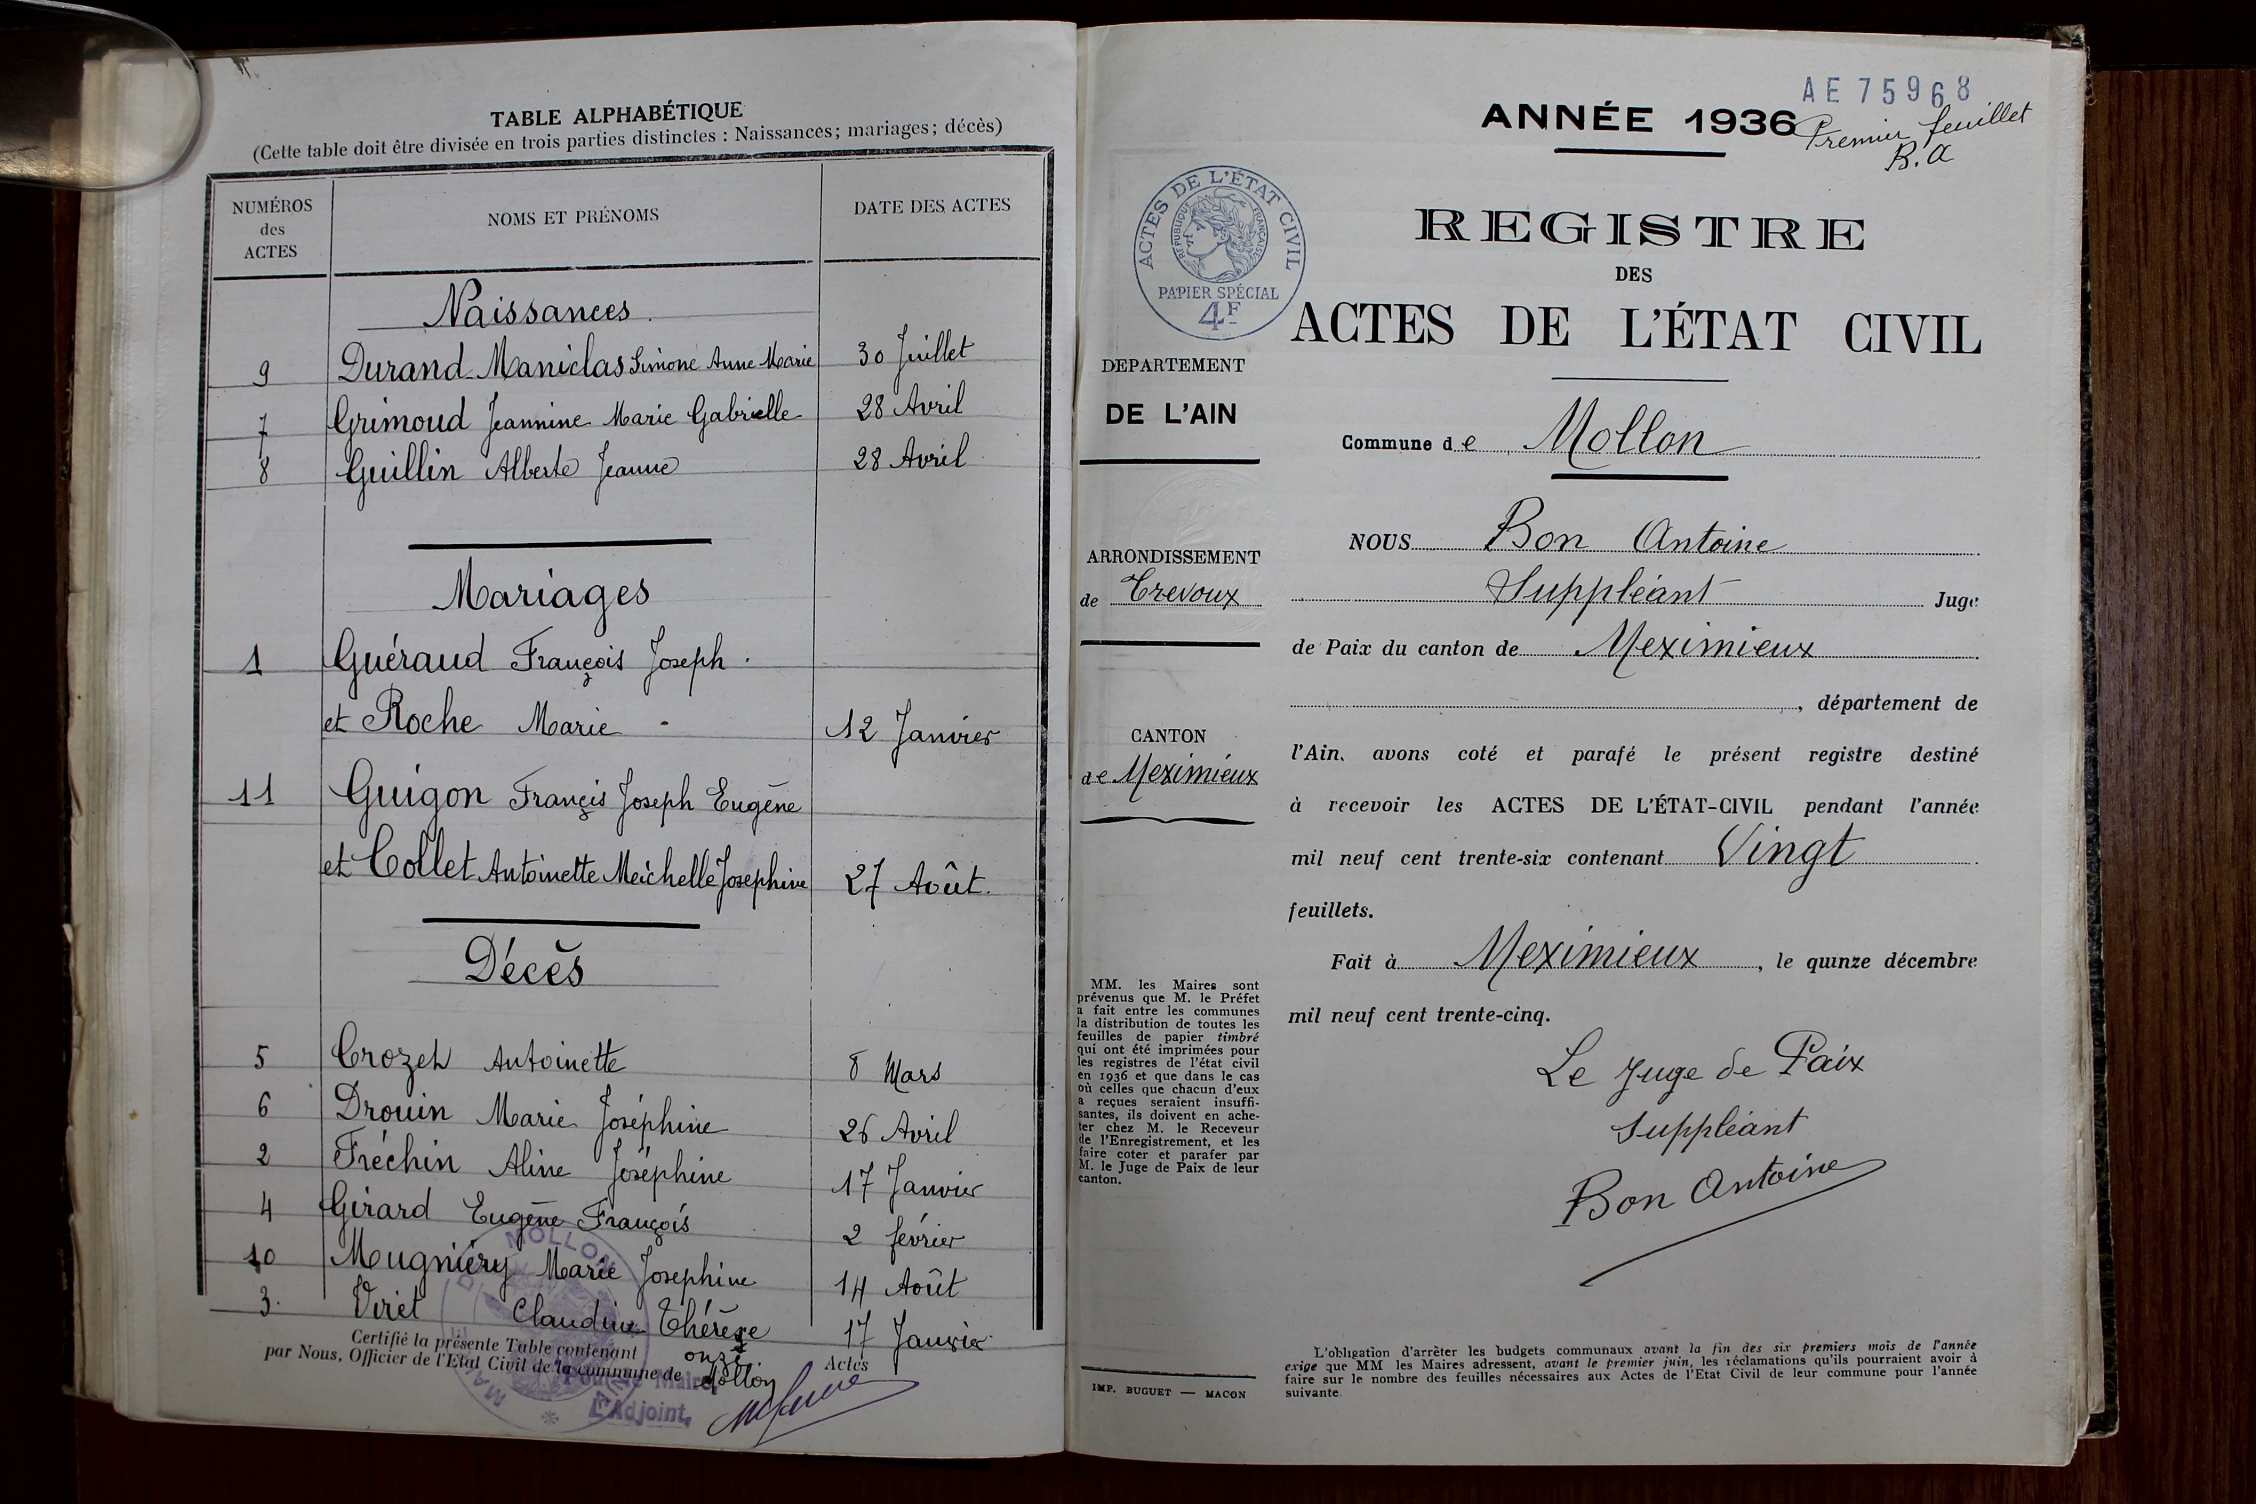 TABLE ALPHABÉTIQUE
(Cette table doit être divisée en trois parties distinctes : Naissances; mariages; décès)
NUMÉROS des ACTES
NOMS ET PRÉNOMS
DATE DES ACTES
Naissances
9 Durand-Maniclas Simone Anne Marie 30 Juillet
7 Grimoud Jeannine Marie Gabrielle 28 Avril
8 Guillin Alberte Jeanne 28 Avril
Mariages
1 Guéraud François Joseph
et Roche Marie 12 Janvier
11 Guigon Françis Joseph Eugène
et Collet Antoinette Meichelle Josephine 27 Août
Décès
5 Crozet Antoinette 8 Mars
6 Drouin Marie Joséphine 26 Avril
2 Fréchin Aline Joséphine 17 Janvier
4 Girard Eugène François 2 février
10 Mugniéry Marie Josephine 14 Août
3. Viret Claudine Thérèse 17 Janvier
Certifié la présente Table contenant onze Actes
par Nous, Officier de l'Etat Civil de la commune de Mollon
MOLLON
L'Adjoint,
AE 75968
ANNÉE 1936
Premier feuillet
B. A
ACTES DE L'ÉTAT CIVIL
RÉPUBLIQUE FRANÇAISE
PAPIER SPÉCIAL
4F
REGISTRE
DES
ACTES DE L'ÉTAT CIVIL
DEPARTEMENT
DE L'AIN
Commune de Mollon
NOUS Bon Antoine
ARRONDISSEMENT
de Trevoux
Suppléant Juge
de Paix du canton de Meximieux
, département de
CANTON
de Meximieux
l'Ain, avons coté et parafé le présent registre destiné
à recevoir les ACTES DE L'ÉTAT-CIVIL pendant l'année
mil neuf cent trente-six contenant Vingt
feuillets.
Fait à Meximieux, le quinze décembre
mil neuf cent trente-cinq.
MM. les Maires sont
prévenus que M. le Préfet
a fait entre les communes
la distribution de toutes les
feuilles de papier timbré
qui ont été imprimées pour
les registres de l'état civil
en 1936 et que dans le cas
où celles que chacun d'eux
a reçues seraient insuffi-
santes, ils doivent en ache-
ter chez M. le Receveur
de l'Enregistrement, et les
faire coter et parafer par
M. le Juge de Paix de leur
canton.
Le Juge de Paix
Suppléant
Bon Antoine
IMP. BUGUET — MACON
L'obligation d'arrêter les budgets communaux avant la fin des six premiers mois de l'année
exige que MM les Maires adressent, avant le premier juin, les réclamations qu'ils pourraient avoir à
faire sur le nombre des feuilles nécessaires aux Actes de l'Etat Civil de leur commune pour l'année
suivante.